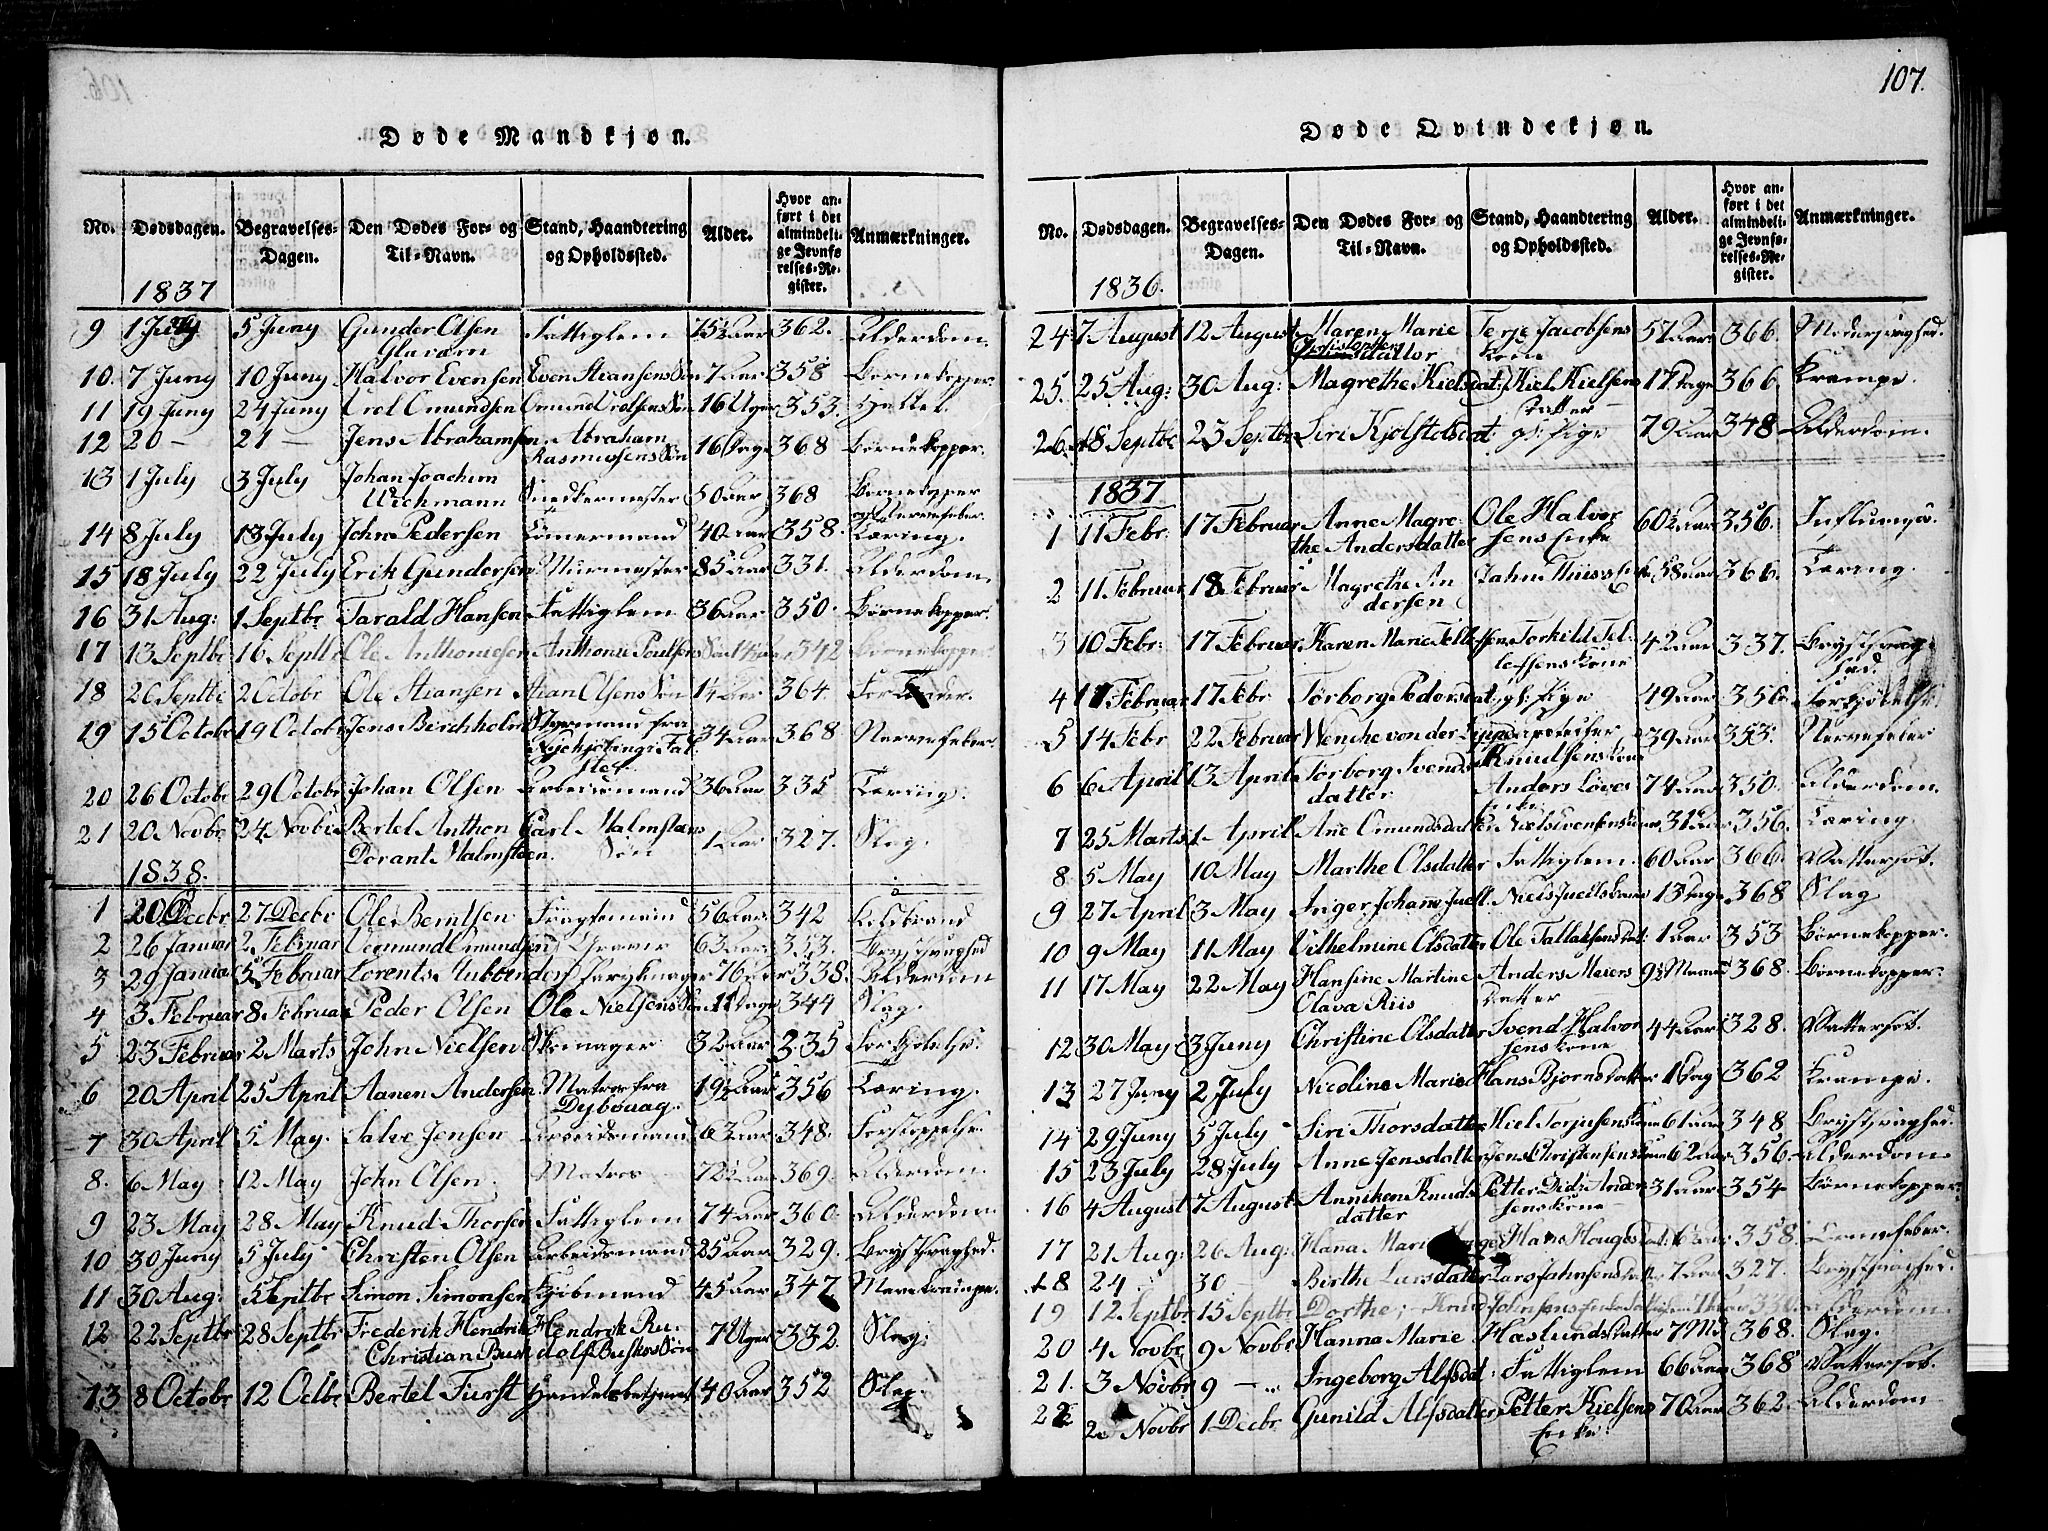 107.
Døde Mandkjøn.
No. Dødsdagen. Begravelses-Dagen. Den Dødes For- og Til-Navn. Stand, Haandtering og Opholdssted. Alder. Hvor anført i det almindelige Jevnførelses-Register. Anmærkninger.
1837
9 1 July 5 Juny Gunder Olsen Glavarn Fattiglem 75½ Aar 362. Alderdom.
10. 7 Juny 10 Juny Halvor Evensen Even Stiansens Søn 7 Aar 358 Børnekopper
11 19 Juny 24 Juny Omundsen Omund Søn 16 Uger 353.
12 20 — 21 — Jens Abrahamsen Abraham Rasmussens Søn 16 Dage 368 Børnekopper.
13 1 July 3 July Johan Joachim Wichmann Snedkermester 50 Aar 368 Børnekopper og Nervefeber.
14 8 July 13 July John Pedersen Tømermand 40 Aar 358. Tæring.
15 18 July 22 July Erik Gundersen Murmester 85 Aar 331. Alderdom.
16 31 Aug: 1 Septbr Tarald Hansen Fattiglem 36 Aar 350. Børnekopper.
17 13 Septbr 16 Septbr Ole Anthonisen Anthoni Poulsens Søn 342 Børnekopper
18 26 Septbr 2 Octobr Ole Stiansen Stian Olsens Søn 364.
19 15 Octobr 19 Octobr Jens Birchholm Styrmand fra Nyekjøbing i Falster 34 Aar 368 Nervefeber.
20 26 Octobr 29 Octobr Johan Olsen Arbeidsmand 36 Aar 335 Tæring.
21 20 Novbr 24 Novbr Bertel Anthon Dorant Malmsteen. Carl Malmsteens Søn 1 Aar 327. Slag.
1838.
1 20 Decbr 27 Decbr Ole Berntsen 56 Aar 342 Koldbrand
2 26 Januar 2 Februar Vermund Omundsen 63 Aar 353. Brystsvaghed
3 29 Januar 5 Februar Lorents Stubbendorf Parykmager 76 Aar 338. Alderdom
4 3 Februar 8 Februar Peder Olsen Ole Nielsens Søn 11 Dage 344 Slag.
5 23 Februar 2 Marts John Nielsen Skomager 32 Aar 335 Forkjølelse.
6 20 April 25 April Aanen Andersen Matros fra Dybvaag. 19½ Aar 356 Tæring.
7 30 April 5 May. Salve Jensen Arbeidsmand 63 Aar 348. Forstoppelse.
8. 6 May 12 May John Olsen. Matros 72½ Aar 369. Alderdom.
9 23 May 28 May Knud Thorsen Fattiglem 74 Aar 360. Alderdom.
10 30 Juny 5 July Christen Olsen Arbeidsmand 25 Aar 329. Brystsvaghed.
11 30 Aug: 5 Septbr Simon Simonsen Kjøbmand 45 Aar 347
12 22 Septbr 28 Septbr Frederik Hendrik Christian Busk Hendrik Rudolf Busks Søn 7 Uger 332. Slag.
13 8 Octobr 12 Octbr. Bertel Furst Handelsbetjent 40 Aar 352 Slag.
Døde Qvindekjøn.
No. Dødsdagen. Begravelses-Dagen. Den Dødes For- og Til-Navn. Stand, Haandtering og Opholdssted. Alder. Hvor anført i det almindelige Jevnførelses-Register. Anmærkninger.
1836.
24 7 August 12 August Maren Marie Christophersdatter Terje Jacobsens Kone 57 Aar 366.
25. 25 Aug: 30 Aug: Magrethe Kielsdat: Kiel Kielsens Datter 17 Dage 366. Krampe.
26. 18 Septbr 23 Septbr Siri Kjølstolsdat: gl: Pige 79 Aar 348 Alderdom.
1837
1 11 Febr: 17 Februar Anne Magrethe Andersdatter Ole Halvorsens Enke 60½ Aar 356. Influenza.
2 11 Februar 18 Februar Magrethe Andersen 58 Aar 366. Tæring.
3 10 Febr: 17 Februar Karen Marie Tellefsen Torkild Tellefsens Kone 42 Aar 337. Brystsvaghed.
4 11 Februar 17 Febr Torborg Pedersdat: gl: Pige 49 Aar 356. Forkjølelse.
5 14 Febr 22 Februar Wenche von der Lippe 39 Aar 353. Nervefeber
6 6 April 13 April Torborg Svendsdatter Anders Løves Enke 74 Aar 350. Alderdom.
7 25 Marts 1 April Ane Omundsdatter 31 Aar 356. Tæring.
8 5 May 10 May Marthe Olsdatter Fattiglem. 60 Aar 366. Vattersot.
9 27 April 3 May Inger Johane Juell. Niels Juells 13 Dage 368 Slag
10 9 May 11 May Vilhelmine Olsdatter Ole Tallaksens Dat: 1 Aar 353 Børnekopper.
11 17 May 22 May Hansine Martine Olava Riis Anders Meiers Datter 9½ Maaned 368. Børnekopper.
12 30 May 3 Juny Christine Olsdatter Svend Halvorsens Kone 44 Aar 328. Vattersot.
13 27 Juny 2 July Nicoline Marie Hans Bjorns Datter 1 Dag 362 Krampe.
14 29 Juny 5 July Siri Thorsdatter Kiel Torjusens Kone 61 Aar 348 Brystsvaghed.
15 23 July 28 July Anne Jensdatter Jens Christensens 62 Aar 356. Alderdom
16 4 August 7 August Anniken Knudsdatter Petter Did: Andersens Kone 31 Aar 354 Børnekopper.
17 21 Aug: 26 Aug: Hana Marie Hans Houges 358.
18 24 30 — Berthe Larsdatter Lars Jahnsens 7 Aar 327. Brystsvaghed.
19 12 Septbr 15 Septbr Dorthe Alderdom.
20 4 Novbr 9 Novbr Hanna Marie Haslunds Datter 368. Slag.
21. 3 Novbr 9 — Ingeborg Alfsdat: Fattiglem 66 Aar 368 Vattersot.
22 Novbr 1 Decbr Gunild Alfsdatter Petter Kielsens Enke 70 Aar 362 Alderdom